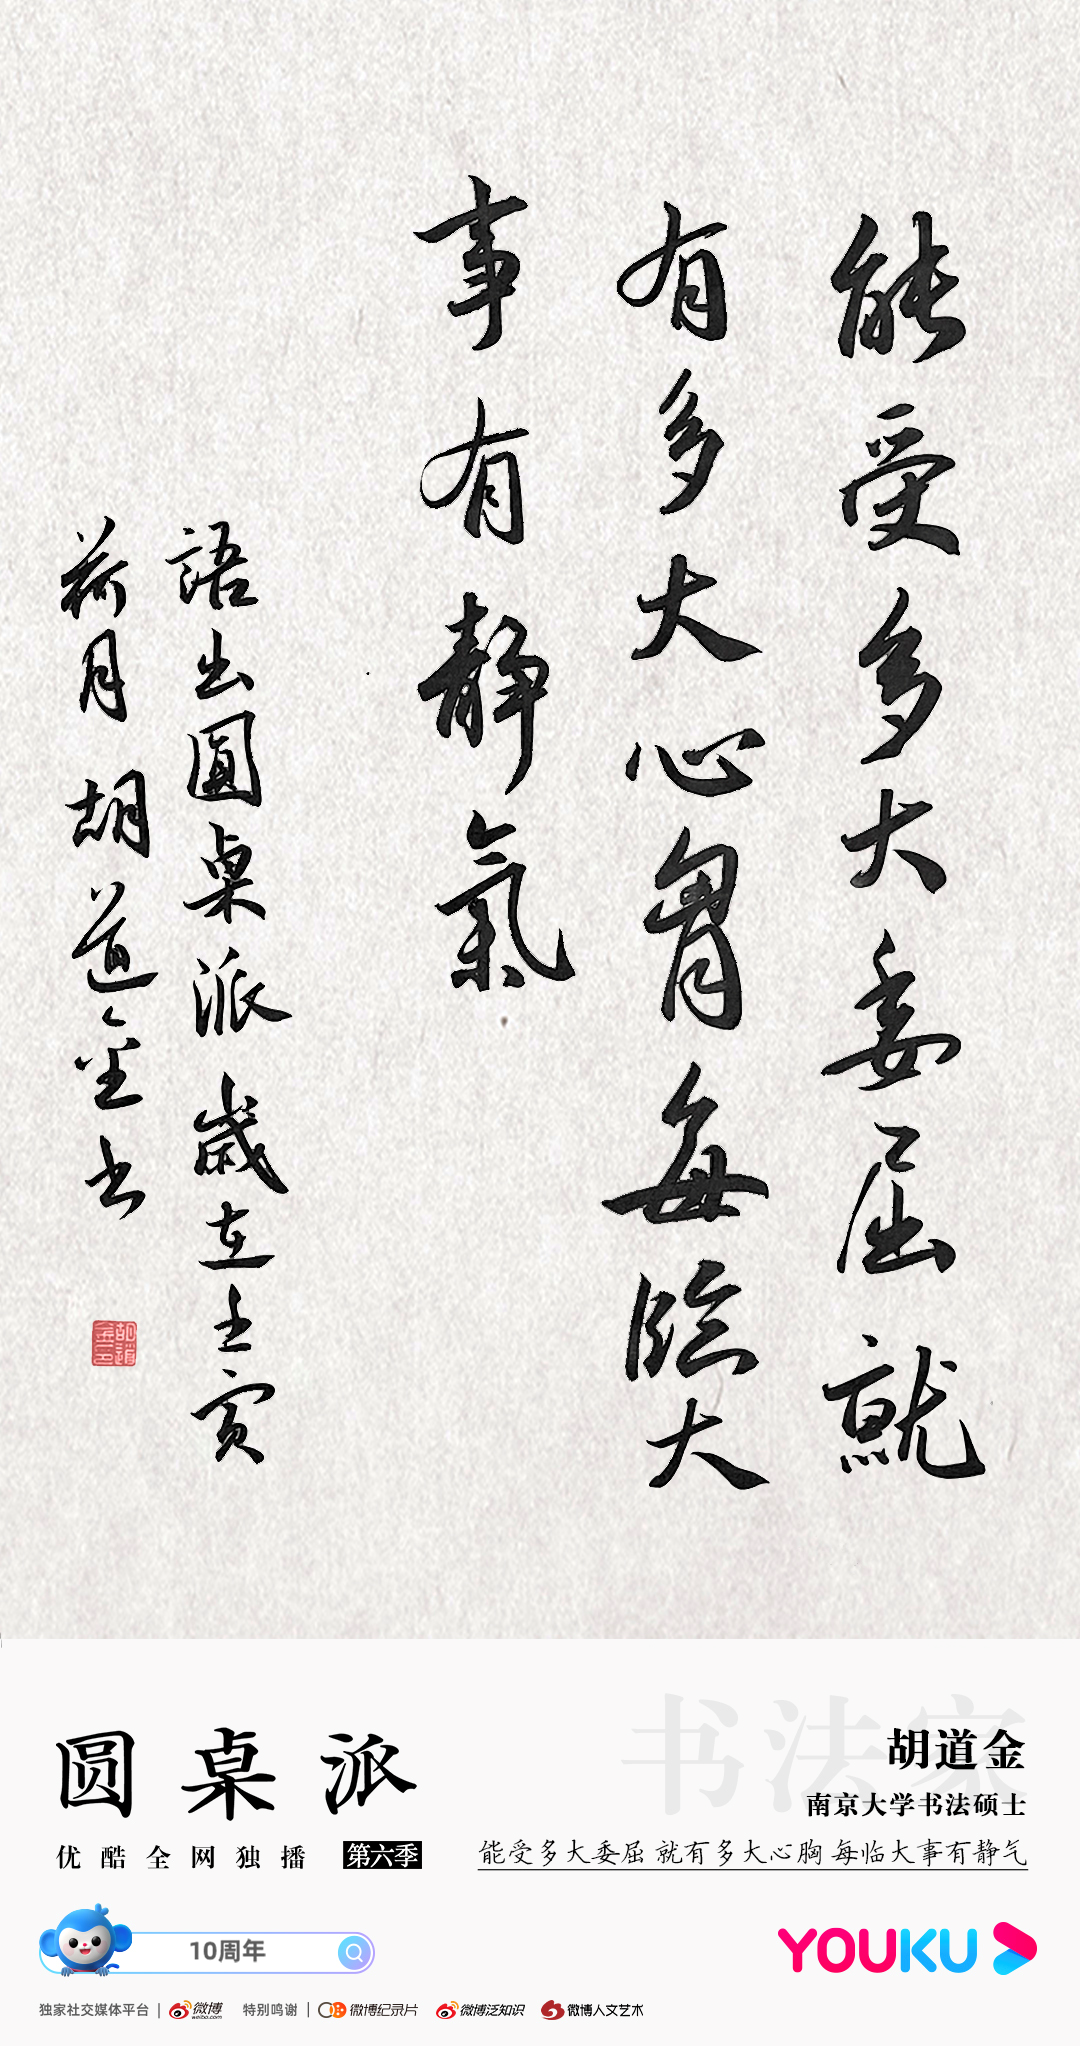 能受多大委屈就
有多大心胷每临大
事有静氣
語出圓桌派歲在壬寅
荷月 胡道金书
胡道金
圆桌派
优酷全网独播 第六季
书法家
胡道金
南京大学书法硕士
能受多大委屈 就有多大心胸 每临大事有静气
10周年
YOUKU
独家社交媒体平台 | 微博 weibo.com 特别鸣谢 | 微博纪录片 微博泛知识 微博人文艺术